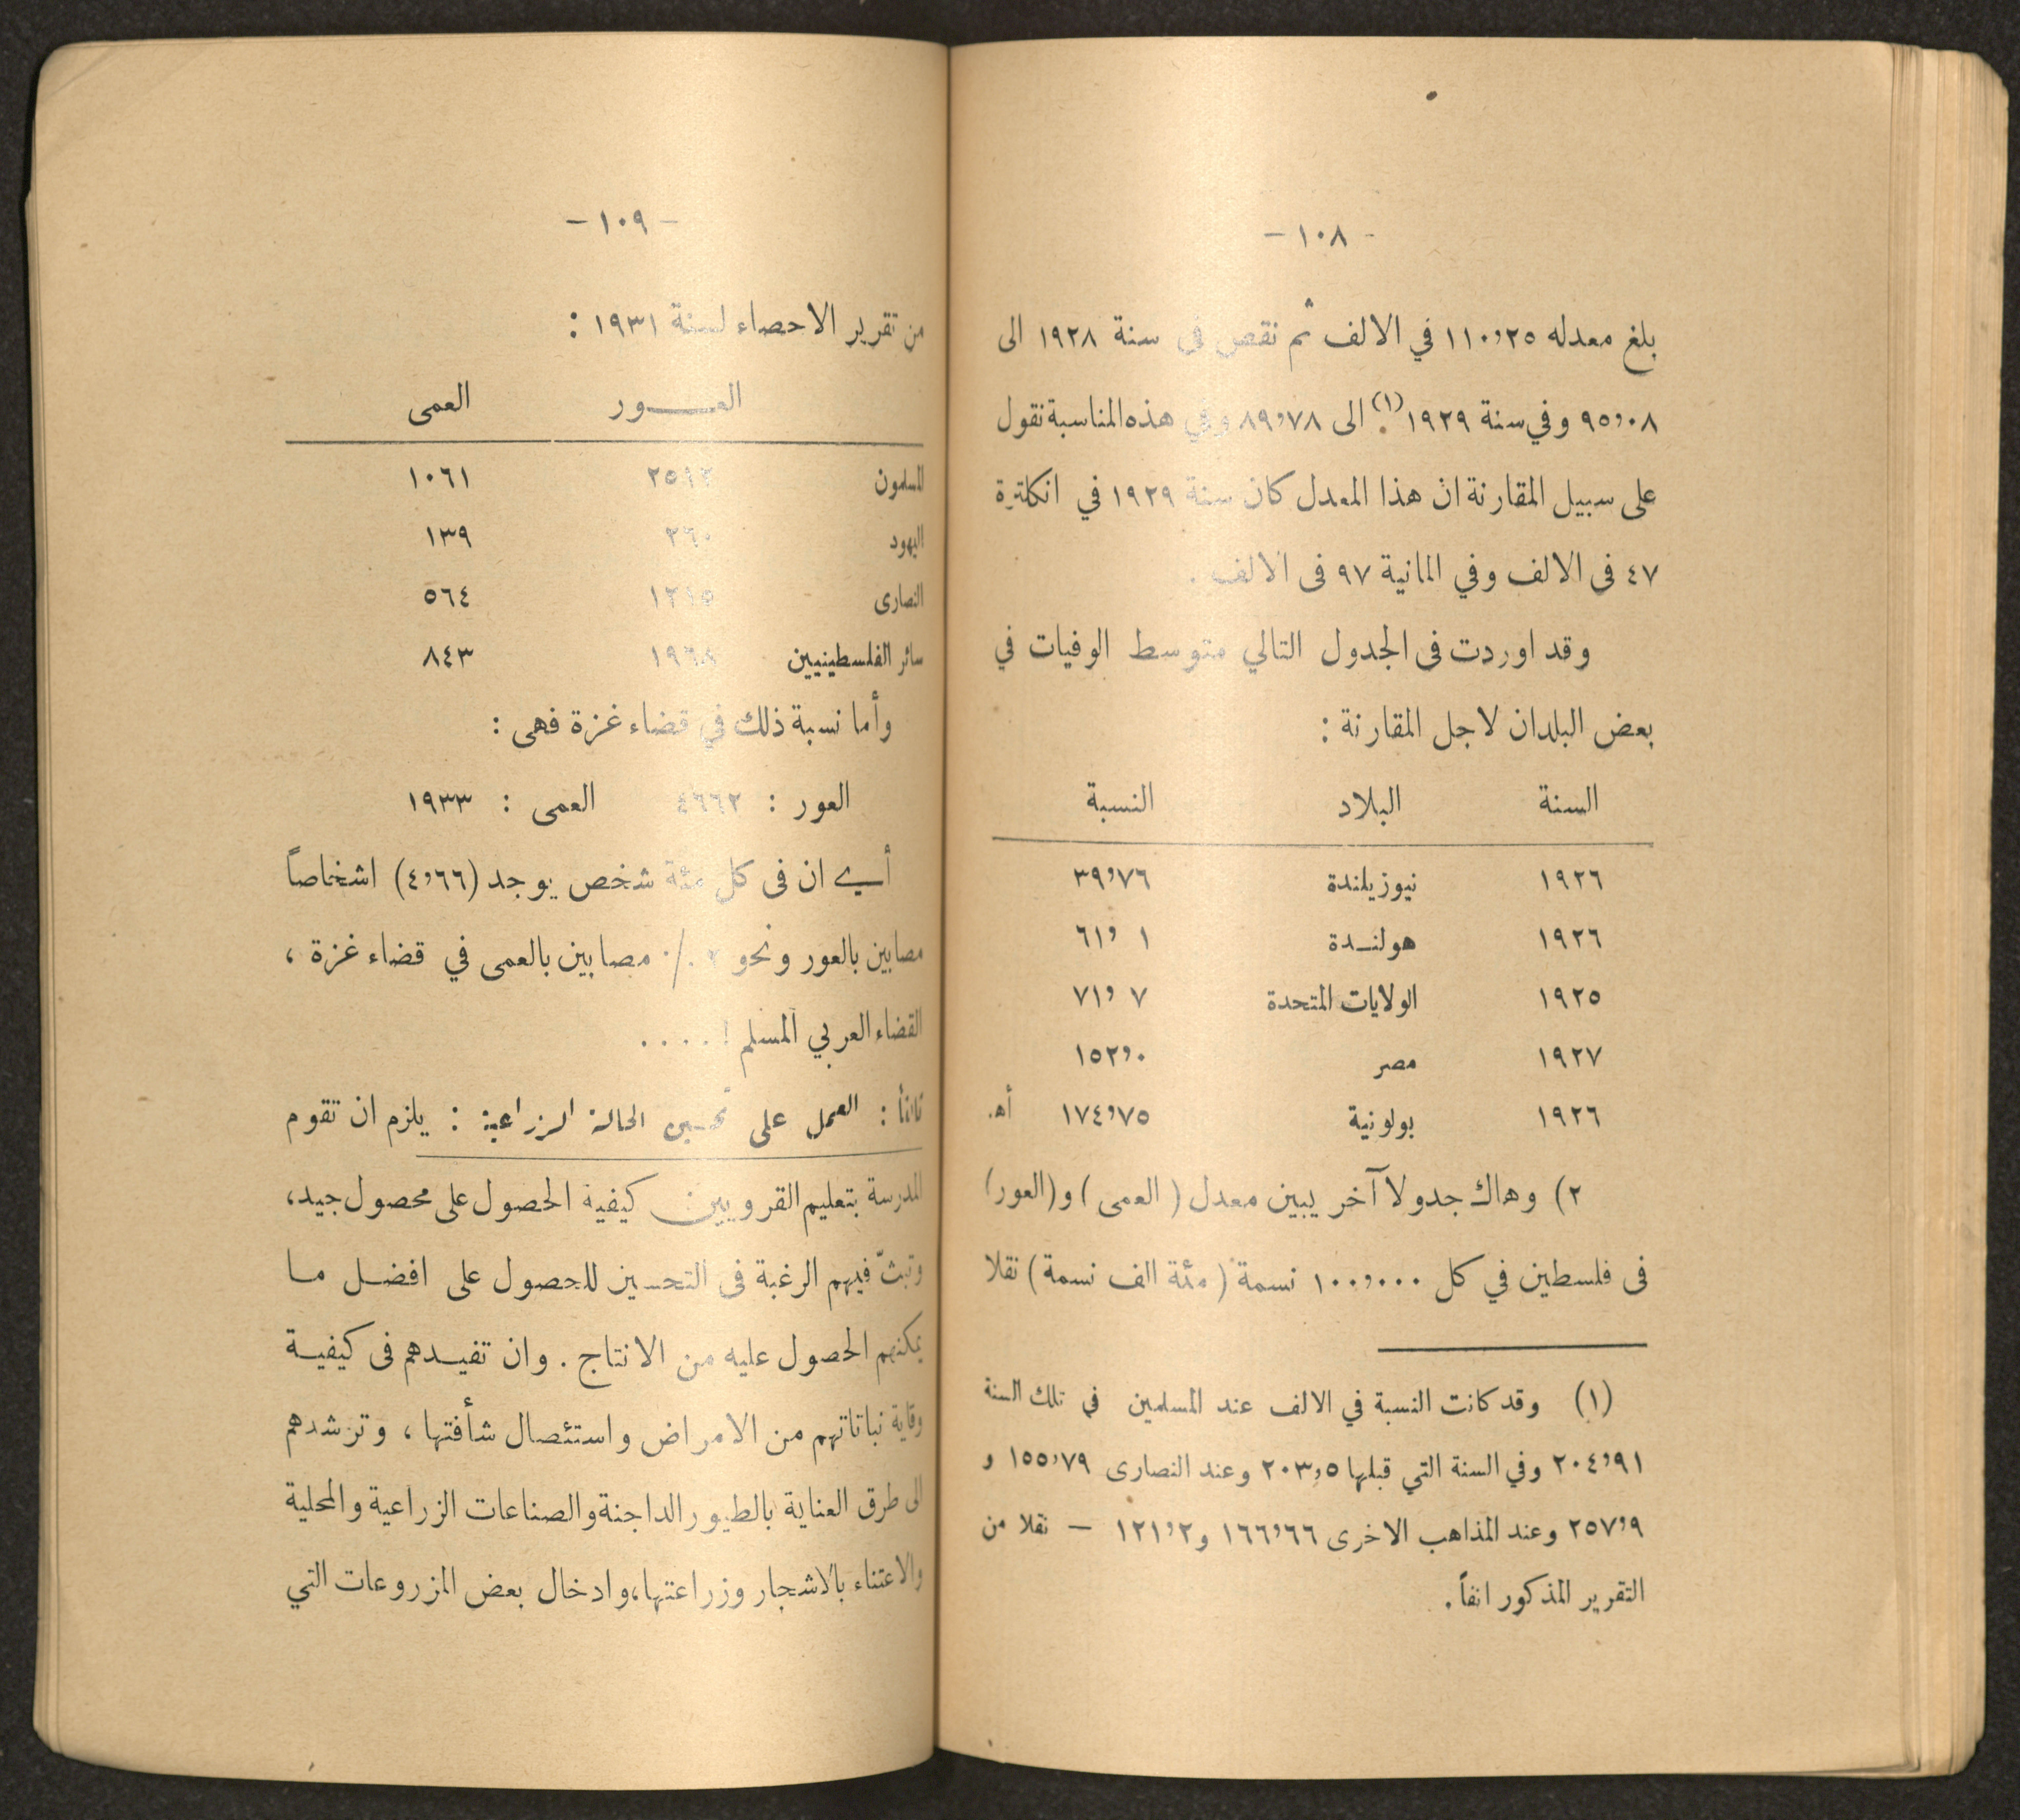 - ١٠٨ -
بلغ معدله ١١٠,٢٥ في الالف ثم نقص فى سنة ١٩٢٨ الى
٩٥,٠٨ وفي سنة ١٩٢٩ (١) الى ٨٩,٧٨ وفي هذه المناسبة نقول
على سبيل المقارنة ان هذا المعدل كان سنة ١٩٢٩ في انكلترة
٤٧ فى الالف وفي المانية ٩٧ فى الالف .
وقد اوردت فى الجدول التالي متوسط الوفيات في
بعض البلدان لاجل المقارنة :
السنة البلاد النسبة
١٩٢٦ نيوزيلندة ٣٩,٧٦
١٩٢٦ هولندة ٦١,١
١٩٢٥ الولايات المتحدة ٧١,٧
١٩٢٧ مصر ١٥٢,٠
١٩٢٦ بولونية ١٧٤,٧٥ أهـ.
٢) وهاك جدولا آخر يبين معدل ( العمى ) و (العور)
فى فلسطين في كل ١٠٠,٠٠٠ نسمة ( مئة الف نسمة ) نقلا
(١) وقد كانت النسبة في الالف عند المسلمين في تلك السنة
٢٠٤,٩١ وفي السنة التي قبلها ٢٠٣,٥ وعند النصارى ١٥٥,٧٩ و
٢٥٧,٩ وعند المذاهب الاخرى ١٦٦,٦٦ و ١٢١,٢ — نقلا من
التقرير المذكور انفاً .
- ١٠٩ -
من تقرير الاحصاء لسنة ١٩٣١ :
العـــور العمى
المسلمون ١٠٦١
اليهود ٢٦٠ ١٣٩
النصارى ١٢١٥ ٥٦٤
سائر الفلسطينيين ١٩٦٨ ٨٤٣
وأما نسبة ذلك في قضاء غزة فهى :
العور : ٤٦٦٢ العمى : ١٩٣٣
أي ان فى كل مئة شخص يوجد (٤,٦٦) اشخاصاً
مصابين بالعور ونحو ٢ ٠/٠ مصابين بالعمى في قضاء غزة ،
القضاء العربي المسلم ! . . . .
ثالثاً : العمل على تحسين الحالة الزراعية : يلزم ان تقوم
المدرسة بتعليم القرويين كيفية الحصول على محصول جيد،
وتبثّ فيهم الرغبة فى التحسين للحصول على افضل ما
يمكنهم الحصول عليه من الانتاج . وان تفيدهم فى كيفية
وقاية نباتاتهم من الامراض واستئصال شأفتها ، وترشدهم
الى طرق العناية بالطيور الداجنة والصناعات الزراعية والمحلية
والاعتناء بالاشجار وزراعتها، وادخال بعض المزروعات التي